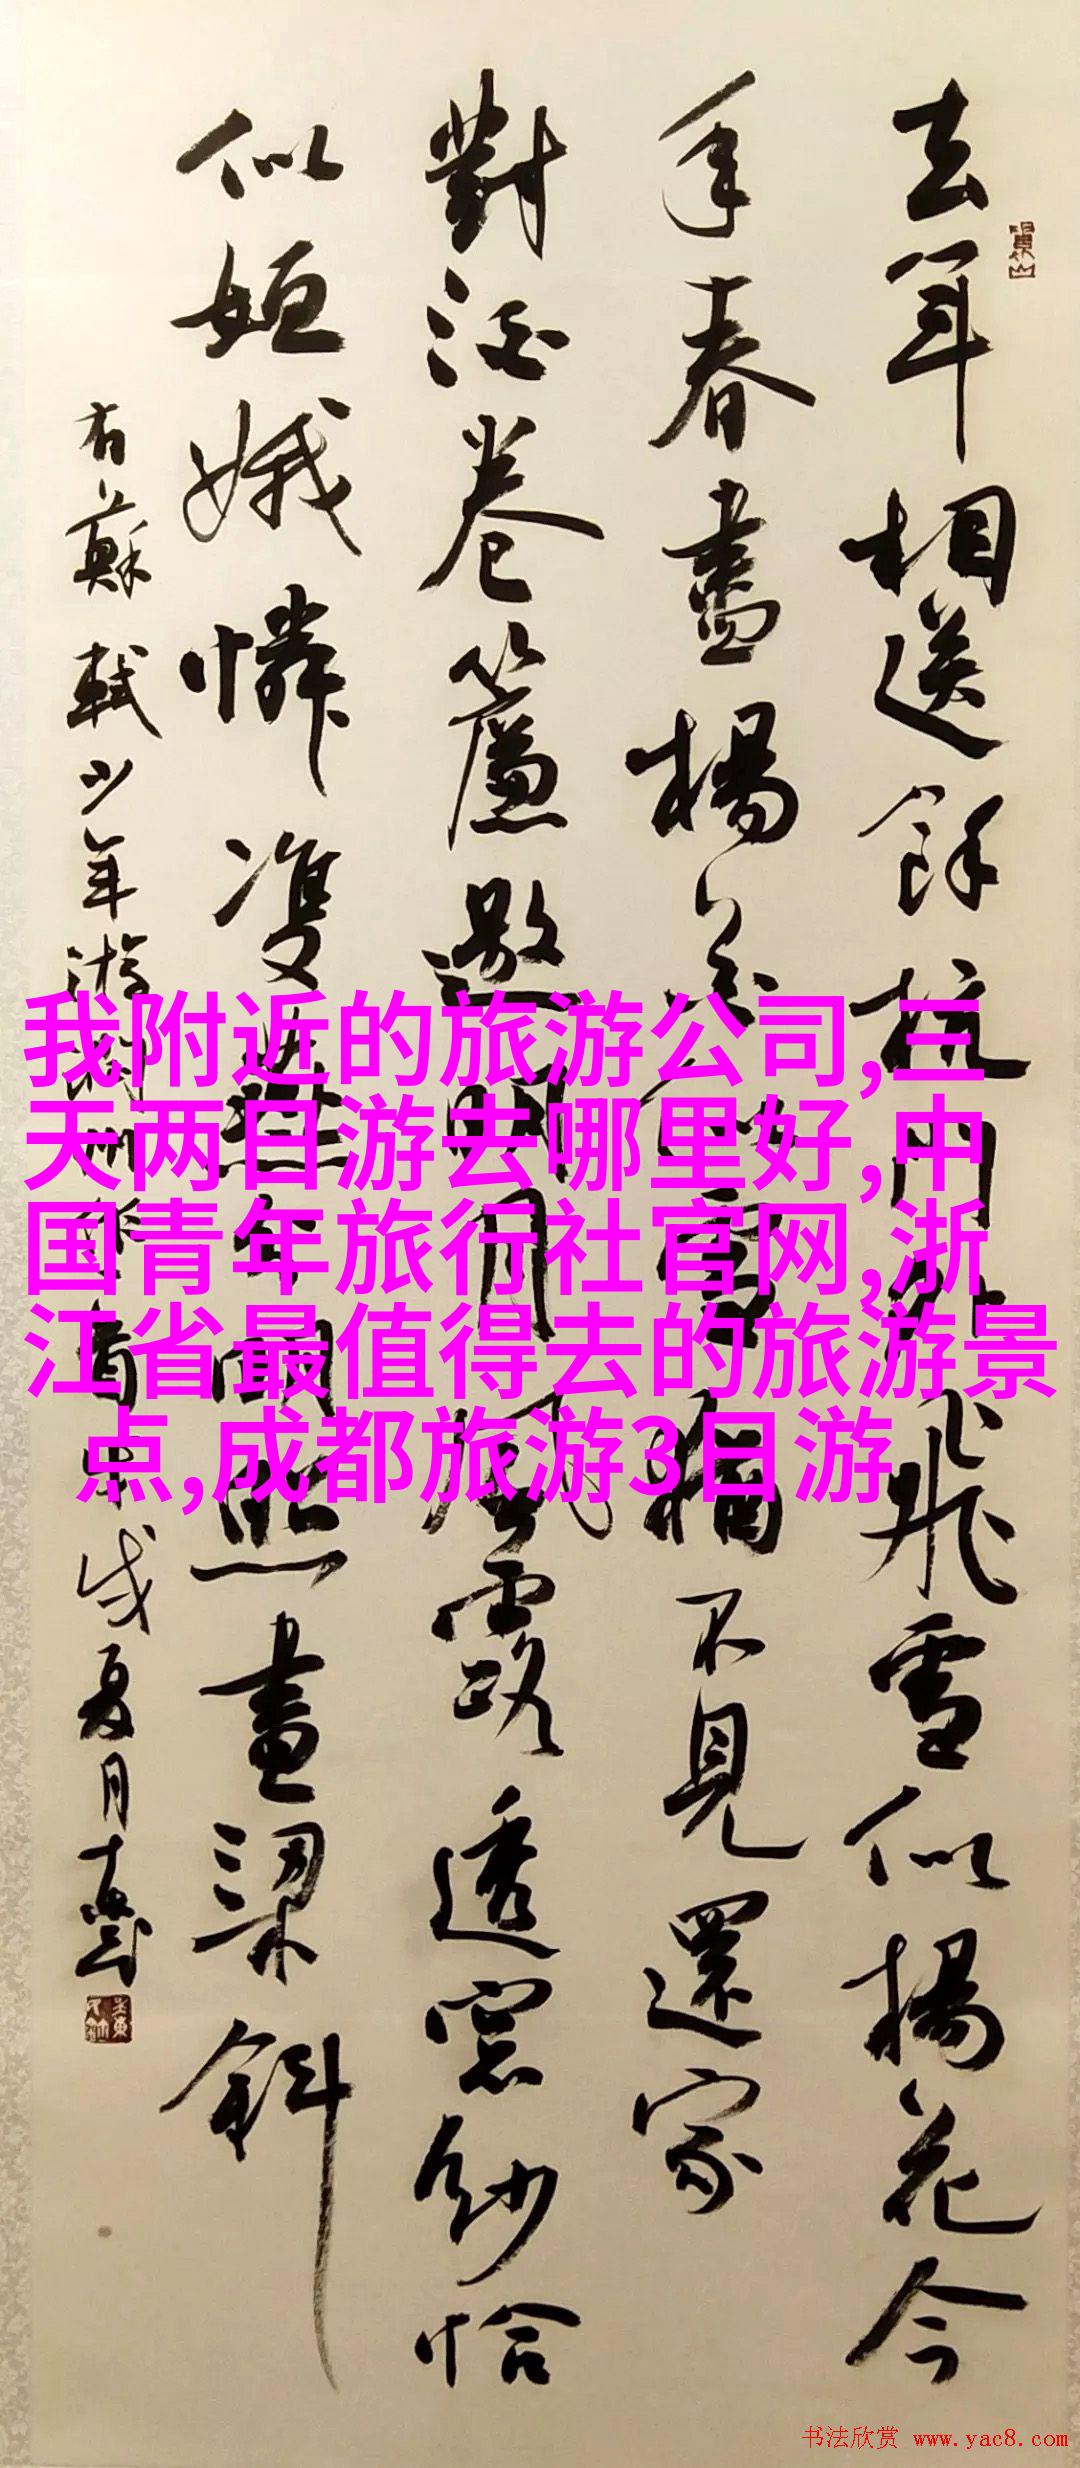 去年相送餘杭門外飛雪似楊花今
年春盡楊花似雪猶不見還家
對酒卷簾邀明月風露透窗紗恰
似姮娥憐雙燕分明照畫梁斜
右蘇軾少年游潤州作 戌夏月
我附近的旅游公司,三
天两日游去哪里好,中
国青年旅行社官网,浙
江省最值得去的旅游景
点,成都旅游3日游
书法欣赏 www.yac8.com